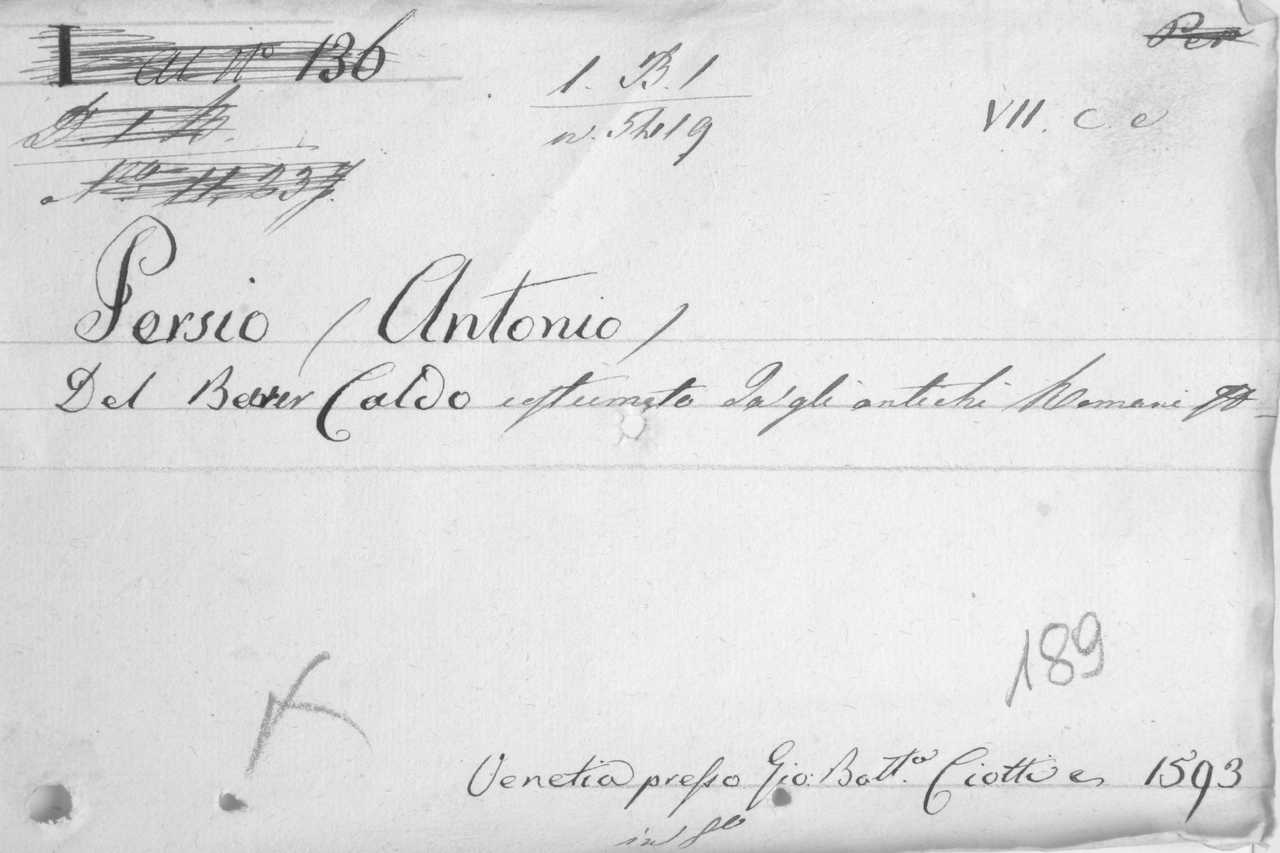 I al N.º 136
Per
1. B. 1
VII. C. e
D. 1 B.
Persio (Antonio)
Del Bever Caldo costumato da'gli antichi Romani
189
Venetia presso Gio: Batt.ª Ciotti 1593
in 8º